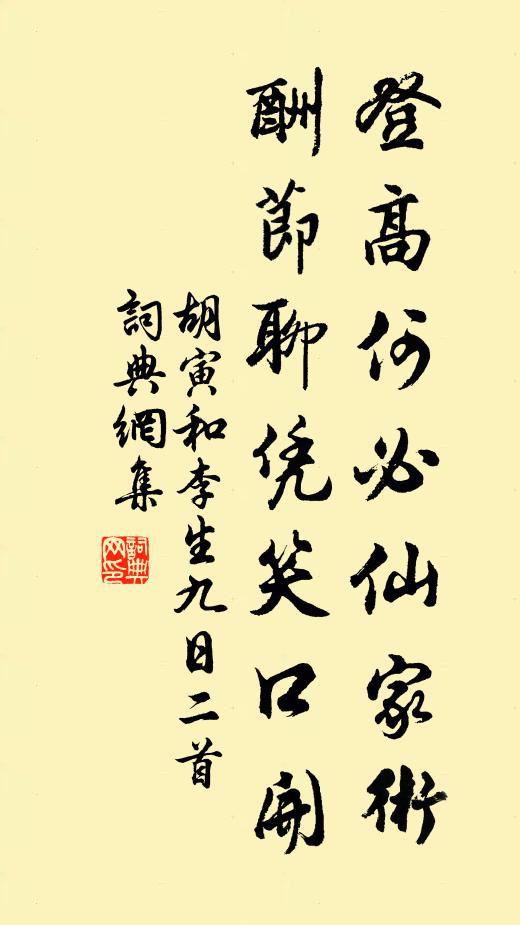 登高何必仙家術
酬節聊凭笑口開
胡寅和李生九日二首
詞典網集
詞典網印